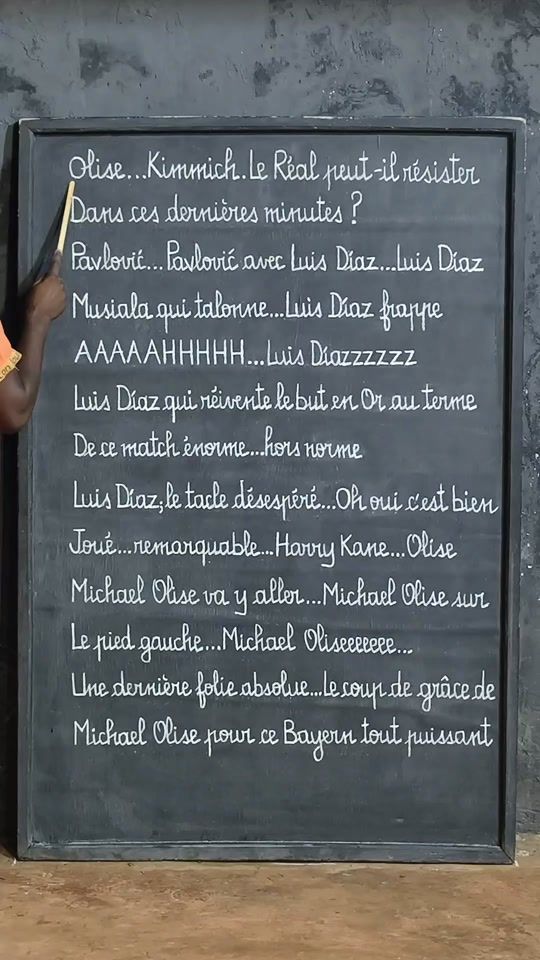 Olise...Kimmich. Le Réal peut-il résister
Dans ces dernières minutes ?
Pavlović... Pavlović avec Luis Díaz...Luis Díaz
Musiala qui talonne...Luis Díaz frappe
AAAAAHHHHH...Luis Díazzzzzz
Luis Díaz qui réivente le but en Or au terme
De ce match énorme...hors norme
Luis Díaz; le tacle désespéré...Oh oui c'est bien
Joué...remarquable...Harry Kane...Olise
Michael Olise va y aller...Michael Olise sur
Le pied gauche...Michael Oliseeeeeee...
Une dernière folie absolue...Le coup de grâce de
Michael Olise pour ce Bayern tout puissant